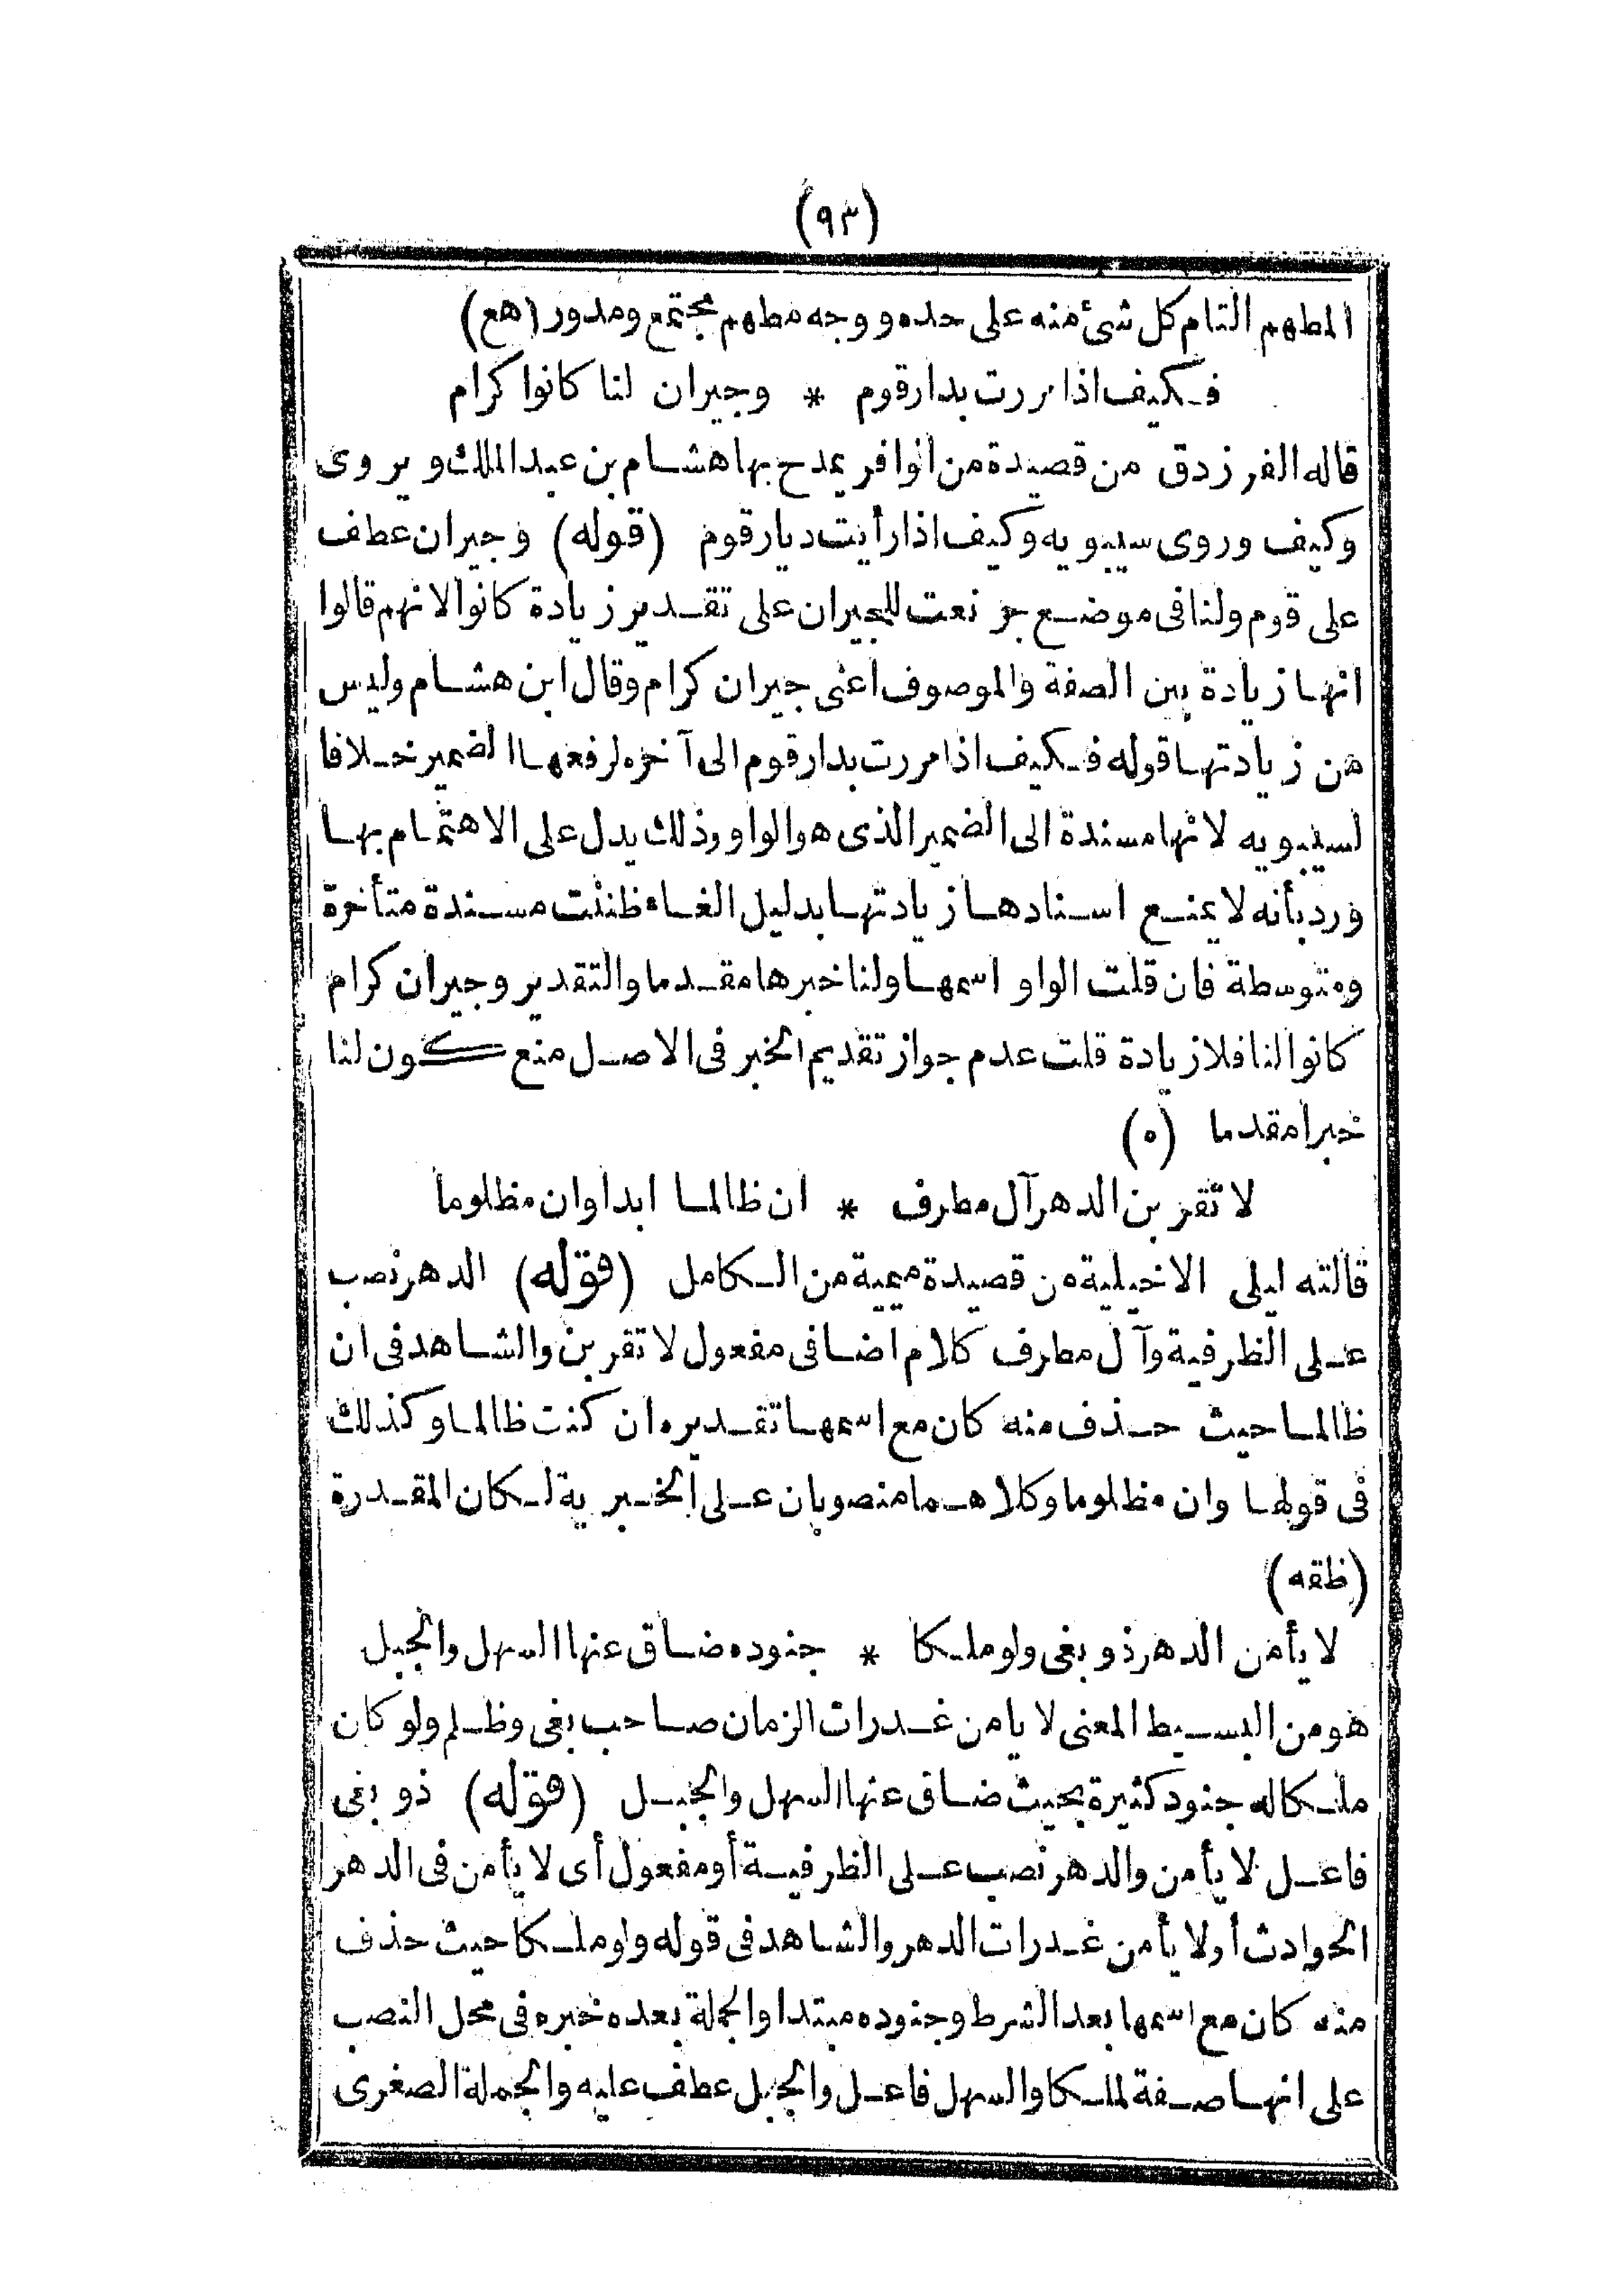 (٩٣)
المطهم التام كل شئ منه على حده ووجه مطهم مجتمع ومدور (هع)
فكيف اذا مررت بدار قوم * وجيران لنا كانوا كرام
قاله الفرزدق من قصيدة من الوافر يمدح بها هشام بن عبد الملك ويروى
وكيف وروى سيبويه وكيف اذا رأيت ديار قوم (قوله) وجيران عطف
على قوم ولنا فى موضع جر نعت للجيران على تقدير زيادة كانوا لانهم قالوا
انها زيادة بين الصفة والموصوف اعنى جيران كرام وقال ابن هشام وليس
من زيادتها قوله فكيف اذا مررت بدار قوم الى آخره لرفعها الضمير خلافا
لسيبويه لانها مسندة الى الضمير الذى هو الواو وذلك يدل على الاهتمام بها
ورد بأنه لا يمنع اسنادها زيادتها بدليل الغاء ظننت مسندة متأخرة
ومتوسطة فان قلت الواو اسمها ولنا خبرها مقدما والتقدير وجيران كرام
كانوا لنا فلا زيادة قلت عدم جواز تقديم الخبر فى الاصل منع كون لنا
خبرا مقدما (ه)
لا تقربن الدهر آل مطرف * ان ظالما ابدا وان مظلوما
قالته ليلى الاخيلية من قصيدة ميمية من الكامل (قوله) الدهر نصب
على الظرفية وآل مطرف كلام اضافى مفعول لا تقربن والشاهد فى ان
ظالما حيث حذف منه كان مع اسمها تقديره ان كنت ظالما وكذلك
فى قولها وان مظلوما وكلاهما منصوبان على الخبرية لكان المقدرة
(ظقه)
لا يأمن الدهر ذو بغى ولو ملكا * جنوده ضاق عنها السهل والجبل
هو من البسيط المعنى لا يامن غدرات الزمان صاحب بغى وظلم ولو كان
ملكا له جنود كثيرة بحيث ضاق عنها السهل والجبل (قوله) ذو بغى
فاعل لا يأمن والدهر نصب على الظرفية أو مفعول أى لا يأمن فى الدهر
الحوادث أو لا يأمن غدرات الدهر والشاهد فى قوله ولو ملكا حيث حذف
منه كان مع اسمها بعد الشرط وجنوده مبتدا والجملة بعده خبره فى محل النصب
على انها صفة لملكا والسهل فاعل والجبل عطف عليه والجملة الصغرى